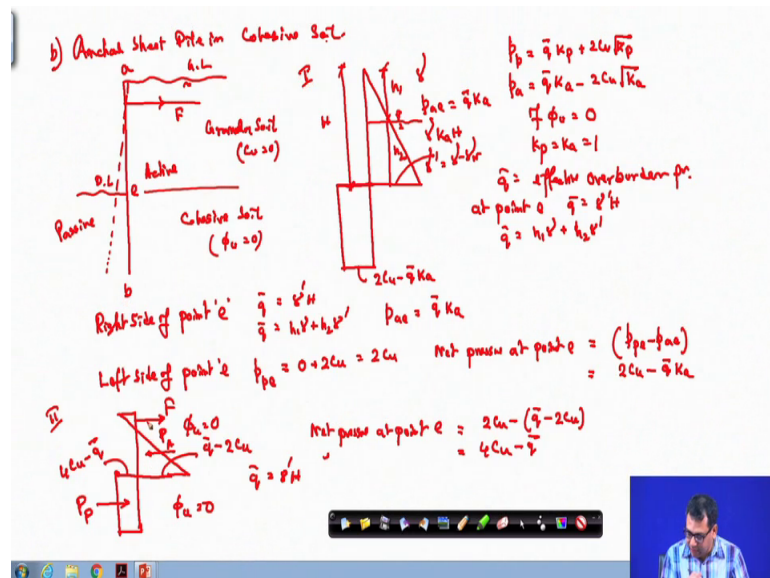 b) Anchor Sheet Pile in Cohesive Soil
a
G.L
F
Granular Soil
(Cu=0)
D.L
e
Active
Passive
Cohesive Soil
(ϕu=0)
b
I
H
h1
γ
p_ae = q̄ka
γ'kaH
h2
2Cu-q̄ka
p_p = q̄kp + 2Cu√kp
p_a = q̄ka - 2Cu√ka
If ϕu = 0
kp = ka = 1
q̄ = effective overburden pr.
at point e q̄ = γ'H
q̄ = h1γ + h2γ'
Right side of point 'e' q̄ = γ'H
q̄ = h1γ + h2γ' p_ae = q̄ka
Left side of point 'e' p_pe = 0+2Cu = 2Cu
Net pressure at point e = (p_pe - p_ae)
= 2Cu - q̄ka
II
F
ϕu=0
P_A
q̄-2Cu
4Cu-q̄
P_p
ϕu=0
q̄ = γ'H
Net pressure at point e = 2Cu - (q̄-2Cu)
= 4Cu - q̄